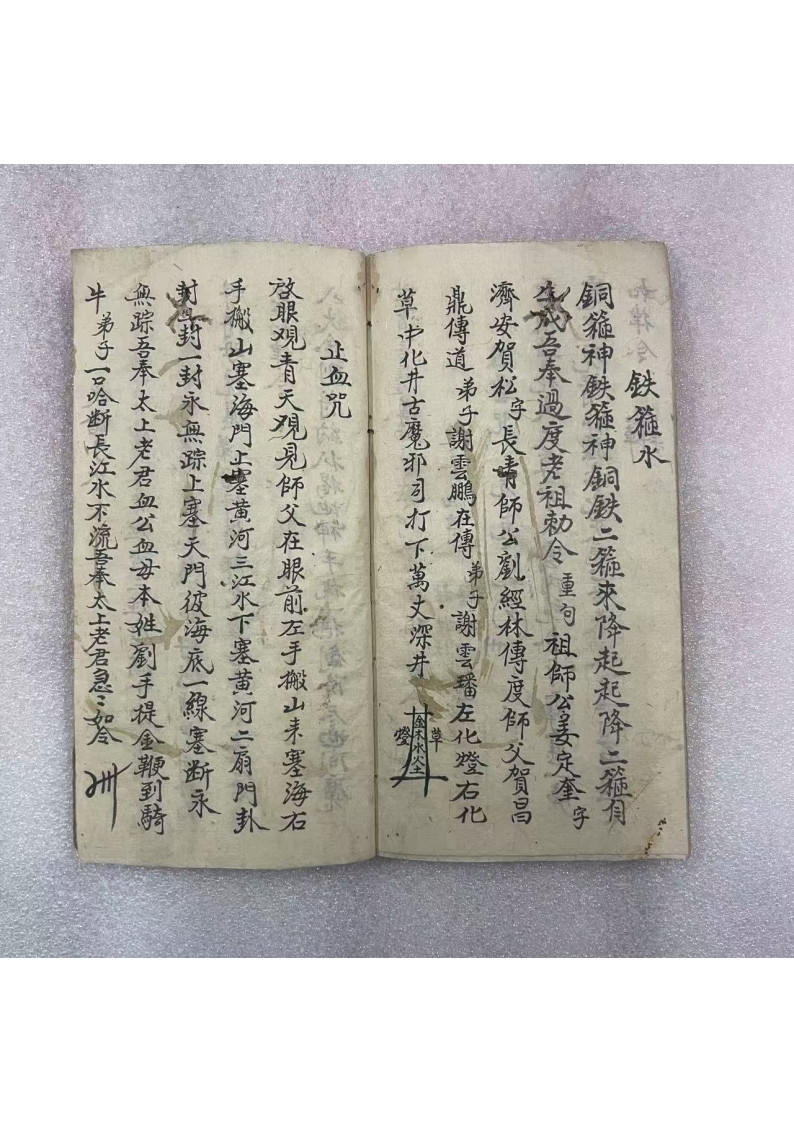 鉄箍水
銅箍神鉄箍神銅鉄二箍來降起起降二箍自
生成吾奉過度老祖勅令 重句 祖師公姜定奎字
濟安賀松字長青師公劉經林傳度師父賀昌
鼎傳道弟子謝雲鵬在傳弟子謝雲璠左化燈右化
草中化井古魔邪司打下萬丈深井
燈 金木水火土 草
止血咒
啟眼观青天观見師父在眼前左手搬山來塞海右
手搬山塞海門上塞黄河三江水下塞黄河二扇門卦
封一封永無踪上塞天門彼海底一線塞断永
無踪吾奉太上老君血公血母本姓劉手提金鞭到騎
牛弟子一口哈断長江水不流吾奉太上老君急〻如令